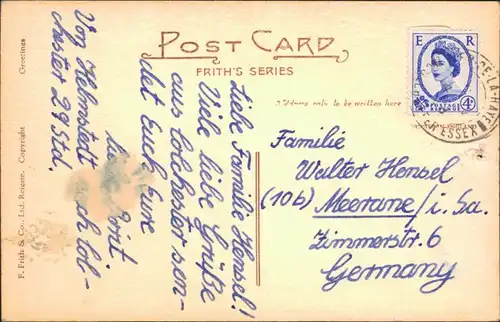 POST CARD
FRITH'S SERIES
Address only to be written here
E R
POSTAGE
REVENUE
4D
ESSEX
Familie
Walter Hensel
(10b) Meerane/i. Sa.
Zimmerstr. 6
Germany
Liebe Familie Hensel!
Viele liebe Grüße
aus Colchester sen-
det Euch Eure
Von Helmstedt nach Col-
chester 29 Std.
Greetings
F. Frith & Co., Ltd. Reigate. Copyright